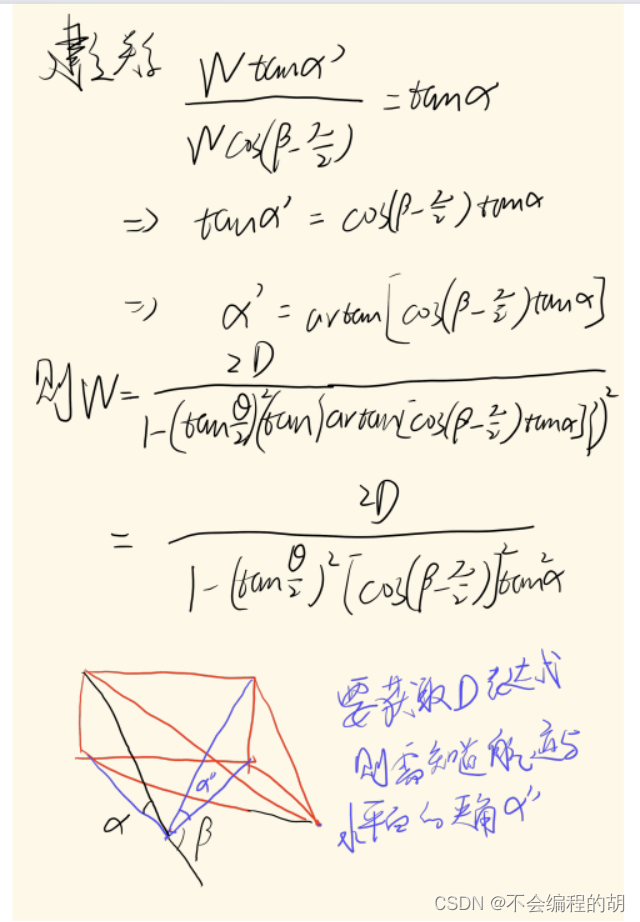 建立关系 W tanα' / W cos(β-π/2) = tanα
=> tanα' = cos(β-π/2)tanα
=> α' = artan[cos(β-π/2)tanα]
则 W = 2D / 1-(tan θ/2)²(tan{artan[cos(β-π/2)tanα]})²
= 2D / 1-(tan θ/2)²[cos(β-π/2)]²tan²α
要获取D表达式
则需知道航迹与
水平面的夹角α''
α α'' β
CSDN @不会编程的胡